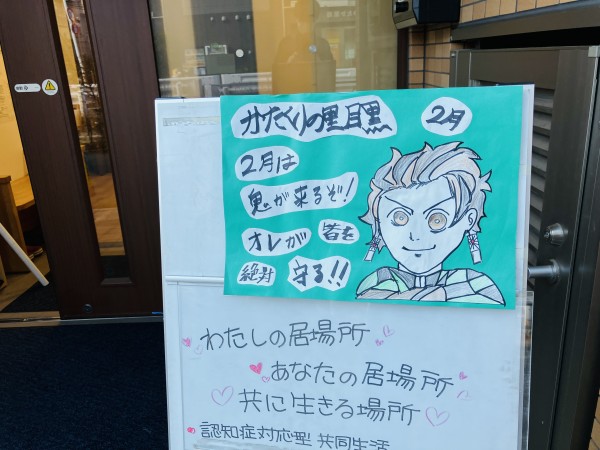 かたくりの里目黒 2月
2月は
鬼が来るぞ!
オレが 皆を
絶対 守る!!
わたしの居場所
あなたの居場所
共に生きる場所
認知症対応型 共同生活